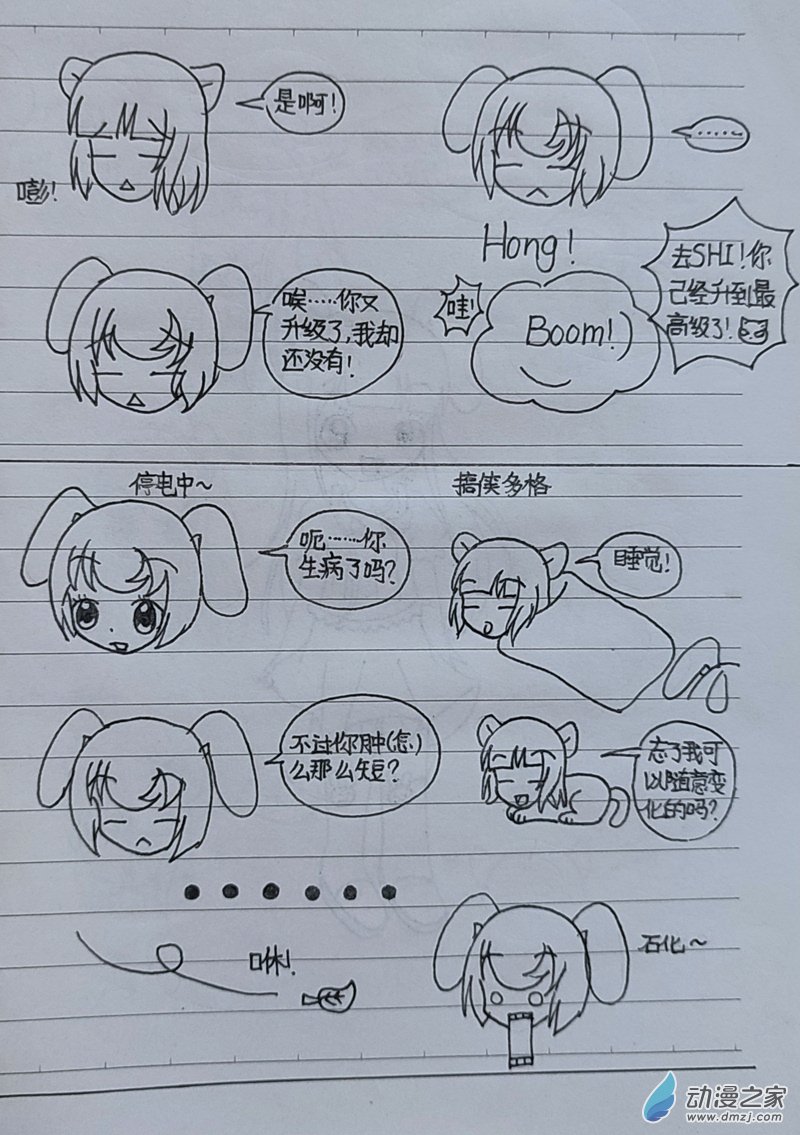 是啊!
……
嘭!
Hong!
去SHI!你
已经升到最
高级了!
唉……你又
升级了,我却
还没有!
哇!
Boom!
停电中~
搞笑多格
呃……你
生病了吗?
睡觉!
不过你肿(怎)
么那么短?
忘了我可
以随意变
化的吗?
咻!
石化~
动漫之家
www.dmzj.com